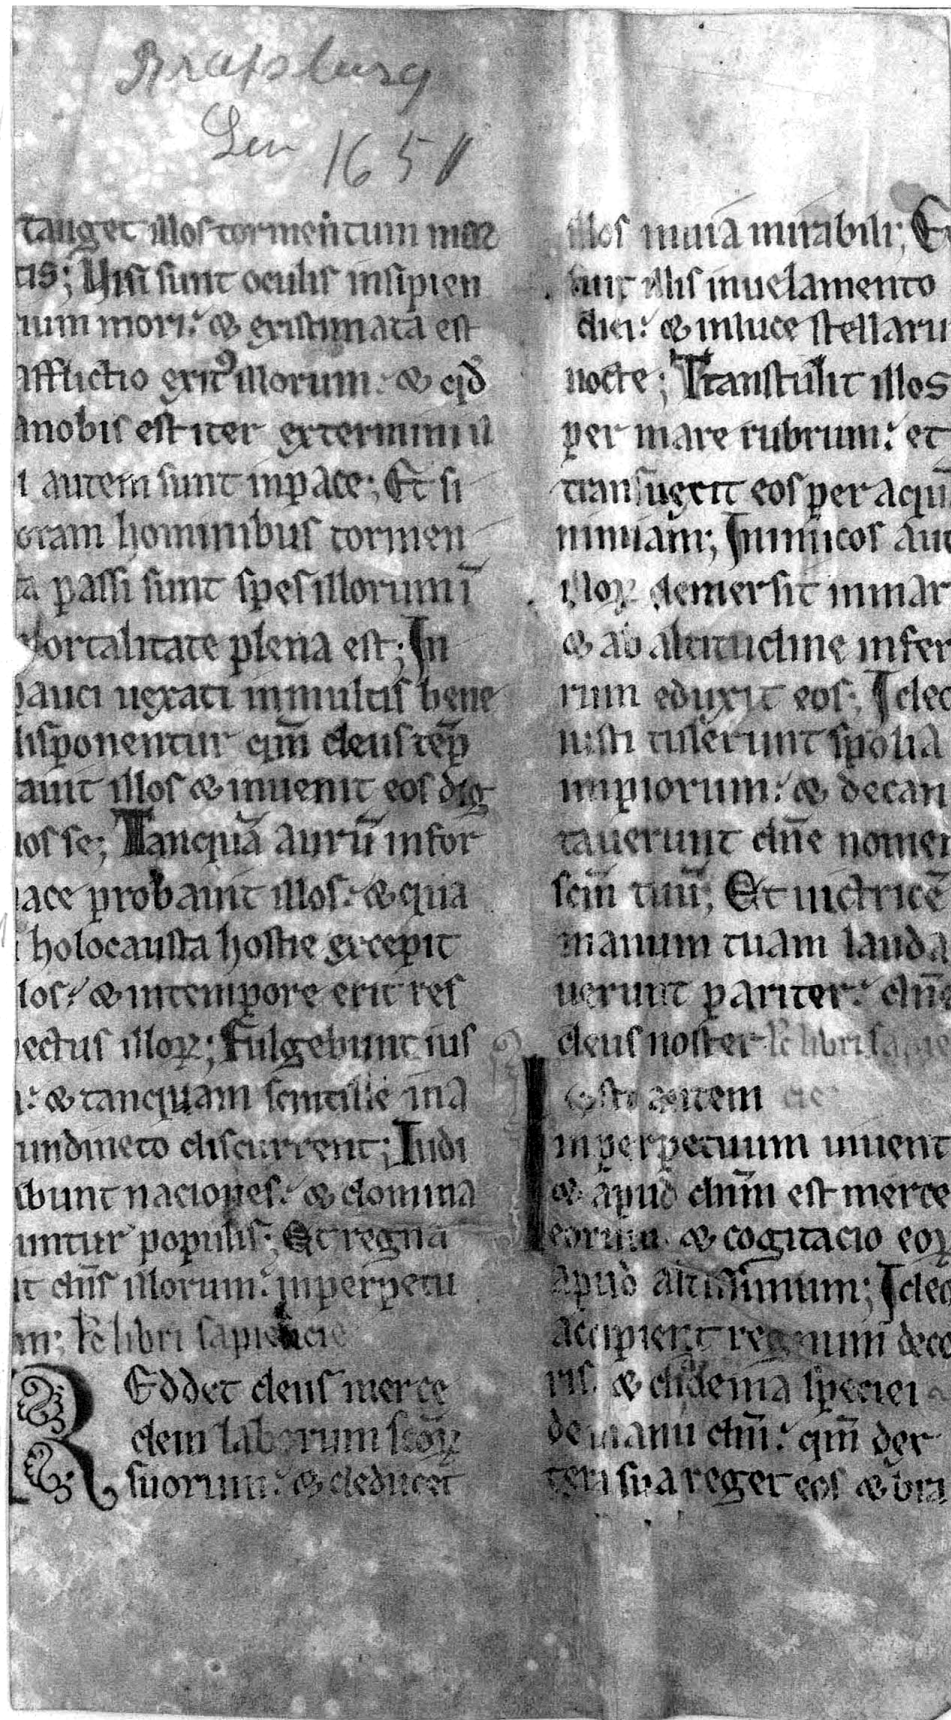 Len 1651
tanget illos tormentum mor
tis; Uisi sunt oculis insipien
tium mori: & existimata est
afflictio exitꝰ illorum: & qđ
anobis est iter exterminii
i autem sunt inpace; Et si
coram hominibus tormen
ta passi sunt spes illorum ī
mortalitate plena est; In
pauci uexati inmultis bene
disponentur qm̄ deus tēp
tauit illos & inuenit eos dig
nos se; Tanquā aurū infor
nace probauit illos: & qua
i holocausta hostie excepit
illos: & intempore erit res
pectus illoꝝ; Fulgebunt ius
i: & tanquam scintille ina
undineto discurrent; Iudi
cabunt naciones: & domina
buntur populis; Et regna
it dn̄s illorum: inperpetu
um; libri sapiencie
Reddet deus merce
dem laborum scōꝝ
suorum: & deducet
illos inuia mirabili; Et
fuit illis inuelamento
diei: & inluce stellaru
nocte; Transtulit illos
per mare rubrum: et
transuexit eos per aquā
nimiam; Inimicos aut
illoꝝ demersit inmar
& ab altitudine infer
rum eduxit eos; Ideo
iusti tulerunt spolia
impiorum: & decan
tauerunt dn̄e nomen
scm̄ tuū; Et uictricē
manum tuam lauda
uerunt pariter: dn̄e
deus noster libri sapie
Iusti autem cie
inperpetuum uiuent
& apud dn̄m est merce
eorum & cogitacio eoꝝ
apud altissimum; Ideo
accipient regnum deco
ris: & diadema speciei
demanu dn̄i: qm̄ dex
tera sua reget eos & bra